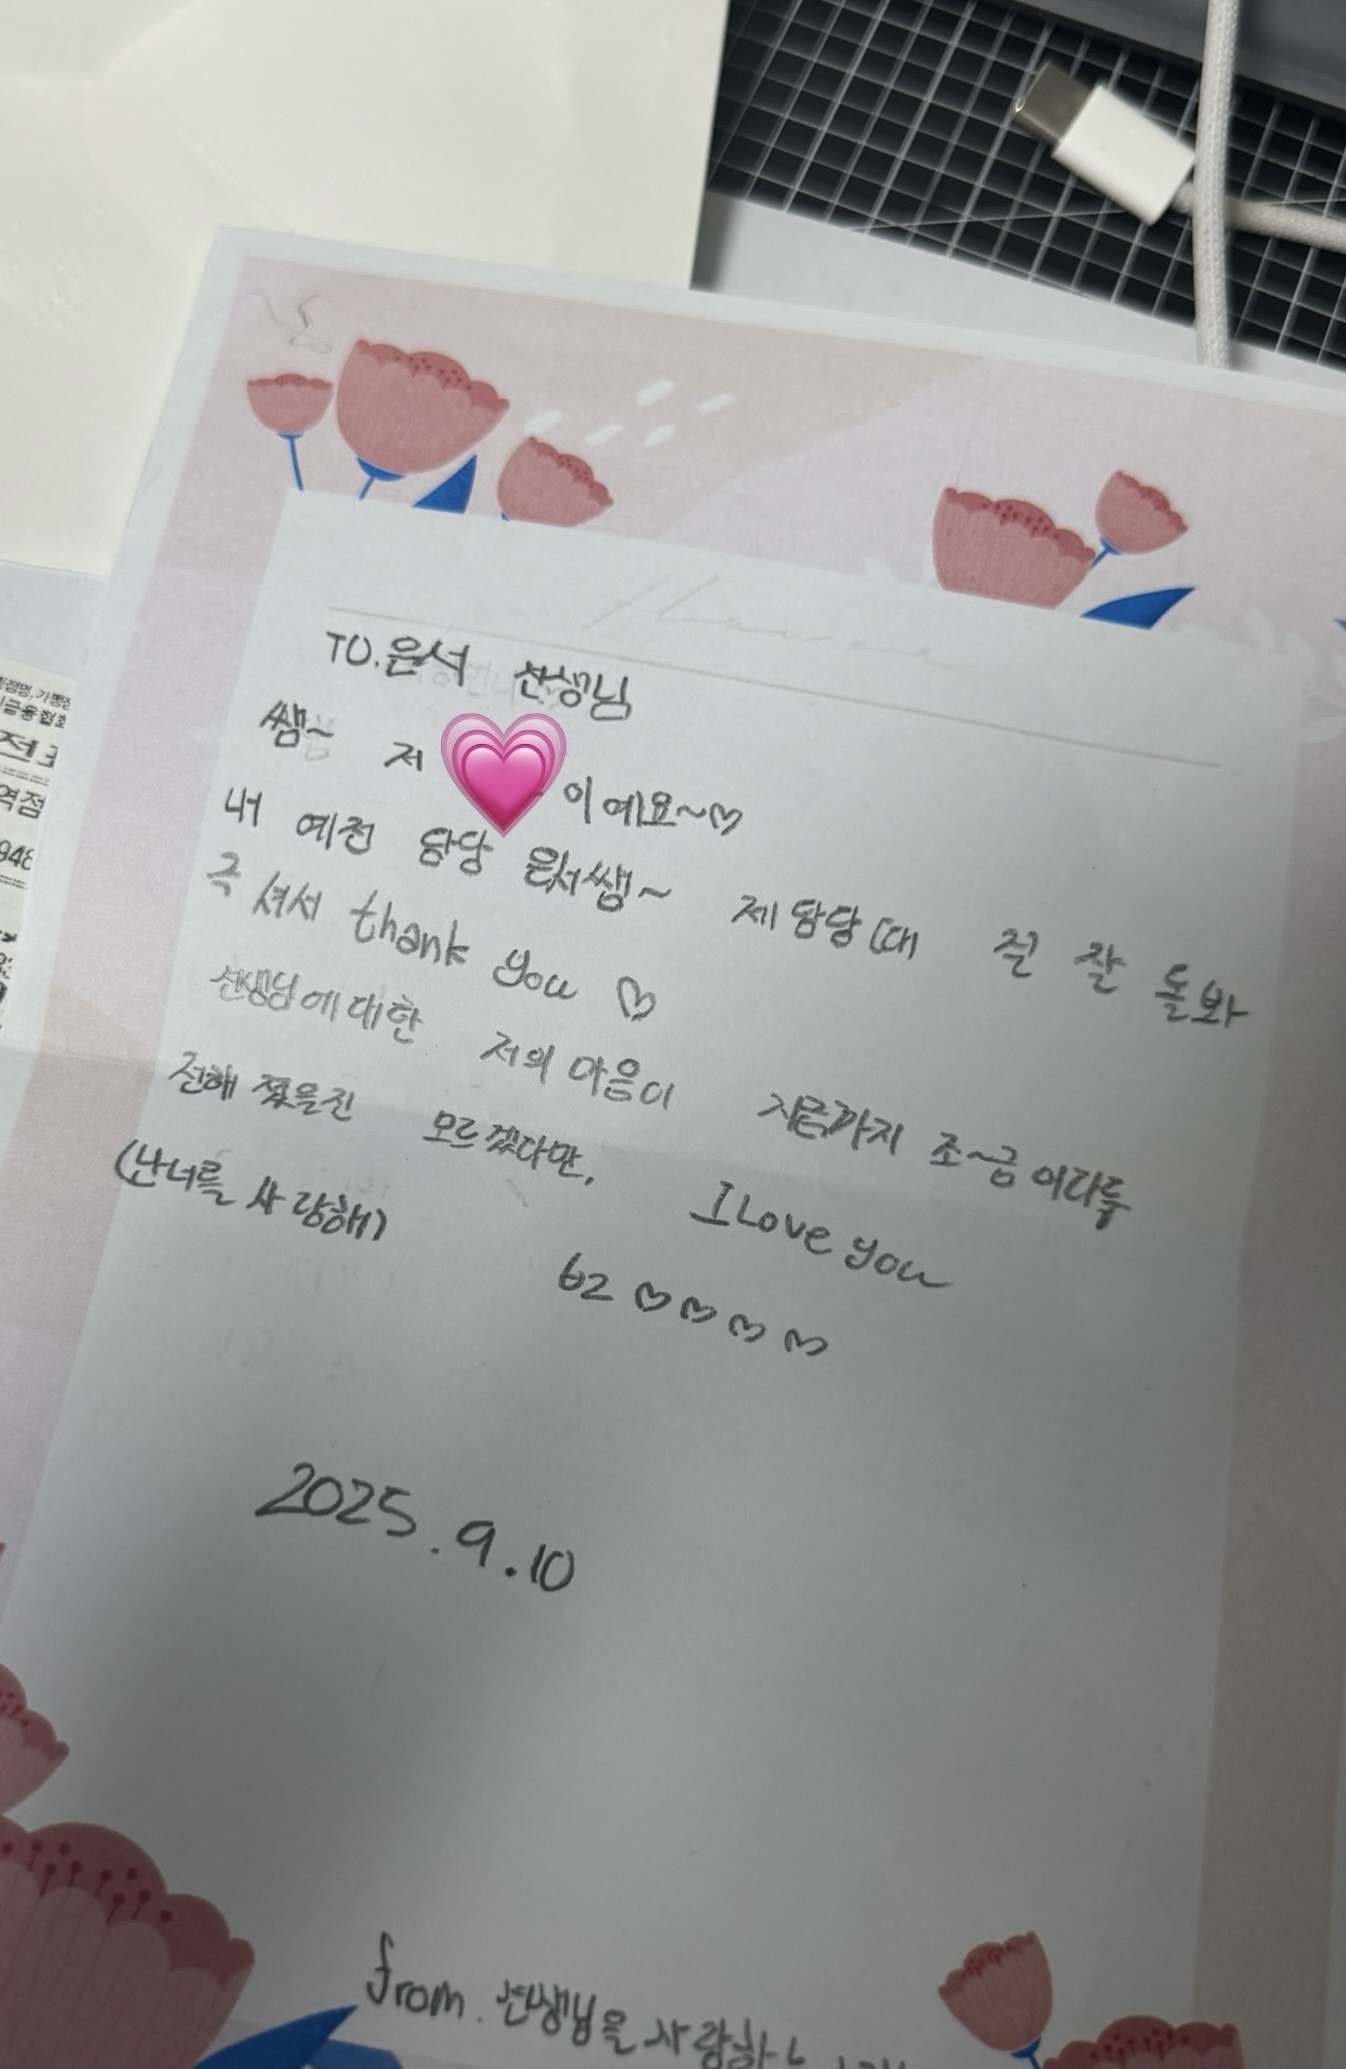 TO. 은서 선생님
쌤~ 저 이예요~♡
내 예전 담당 은서쌤~ 제 담당때 절 잘 돌봐
주셔서 thank you ♡
선생님에 대한 저의 마음이 지금까지 조~금이라두
전해졌을진 모르겠다만, I Love you
(난 너를 사랑해)
62 ♡♡♡♡
2025.9.10
from. 선생님을 사랑하는
전표
역점